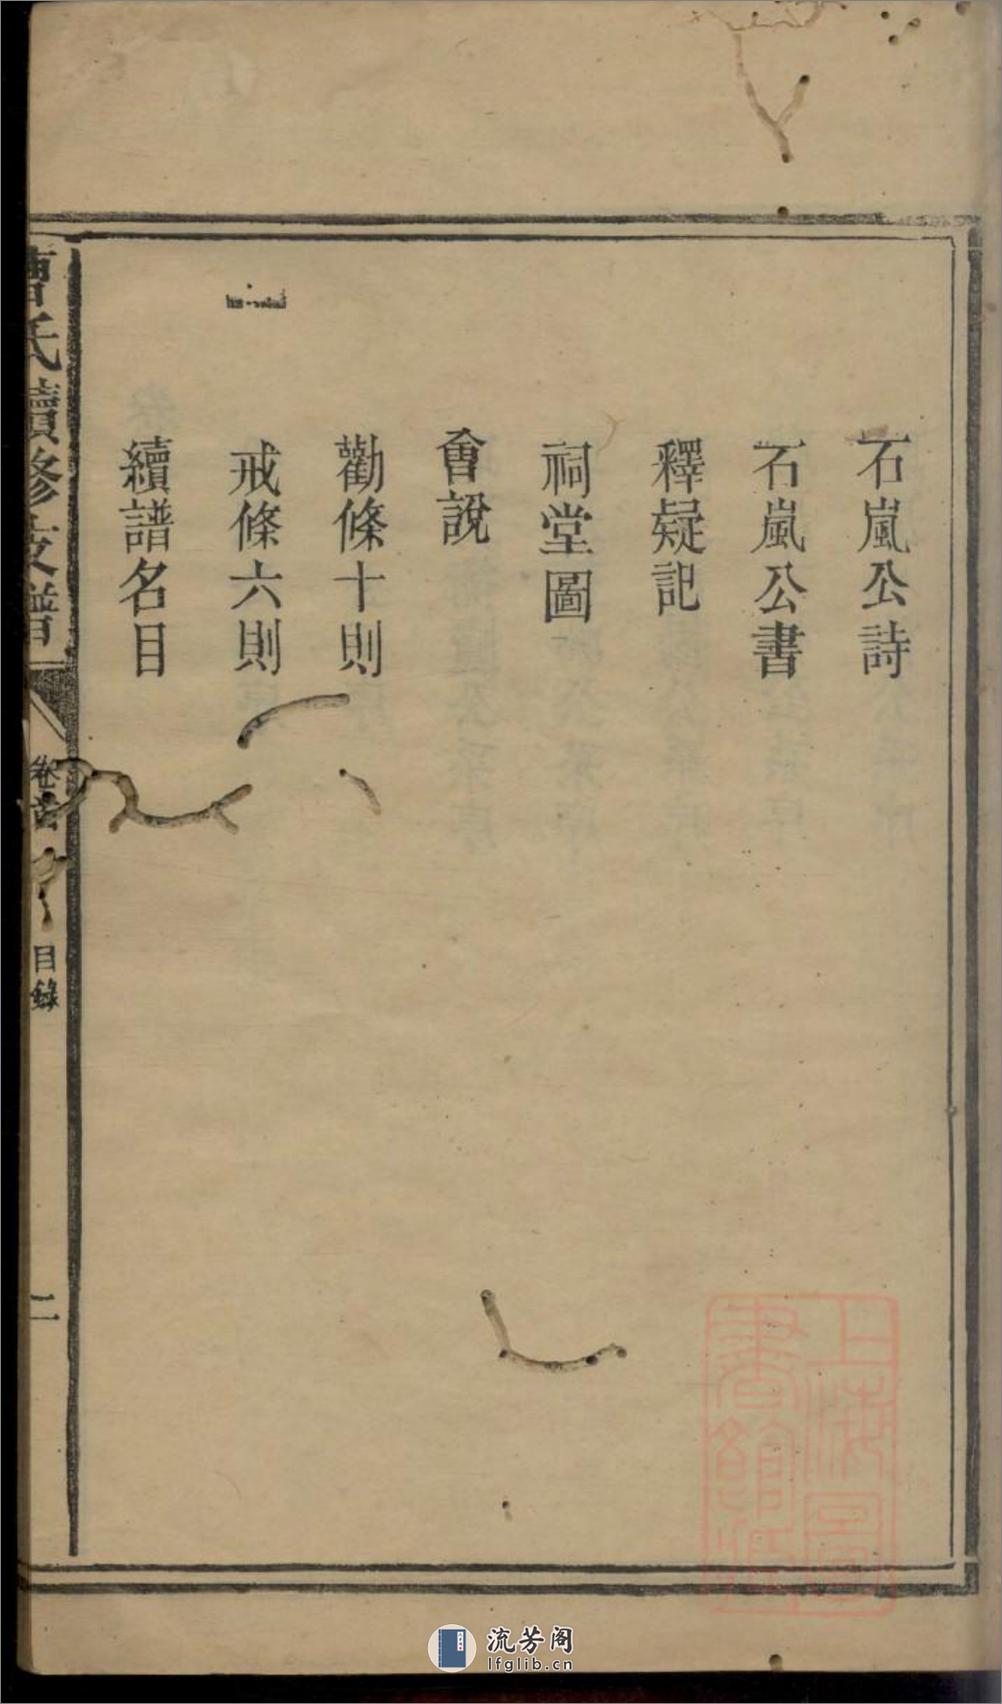 石嵐公詩
石嵐公書
釋疑記
祠堂圖
會說
勸條十則
戒條六則
續譜名目
曹氏續修支譜
卷首
目錄
二
上海圖
書館藏
流芳阁
lfglib.cn